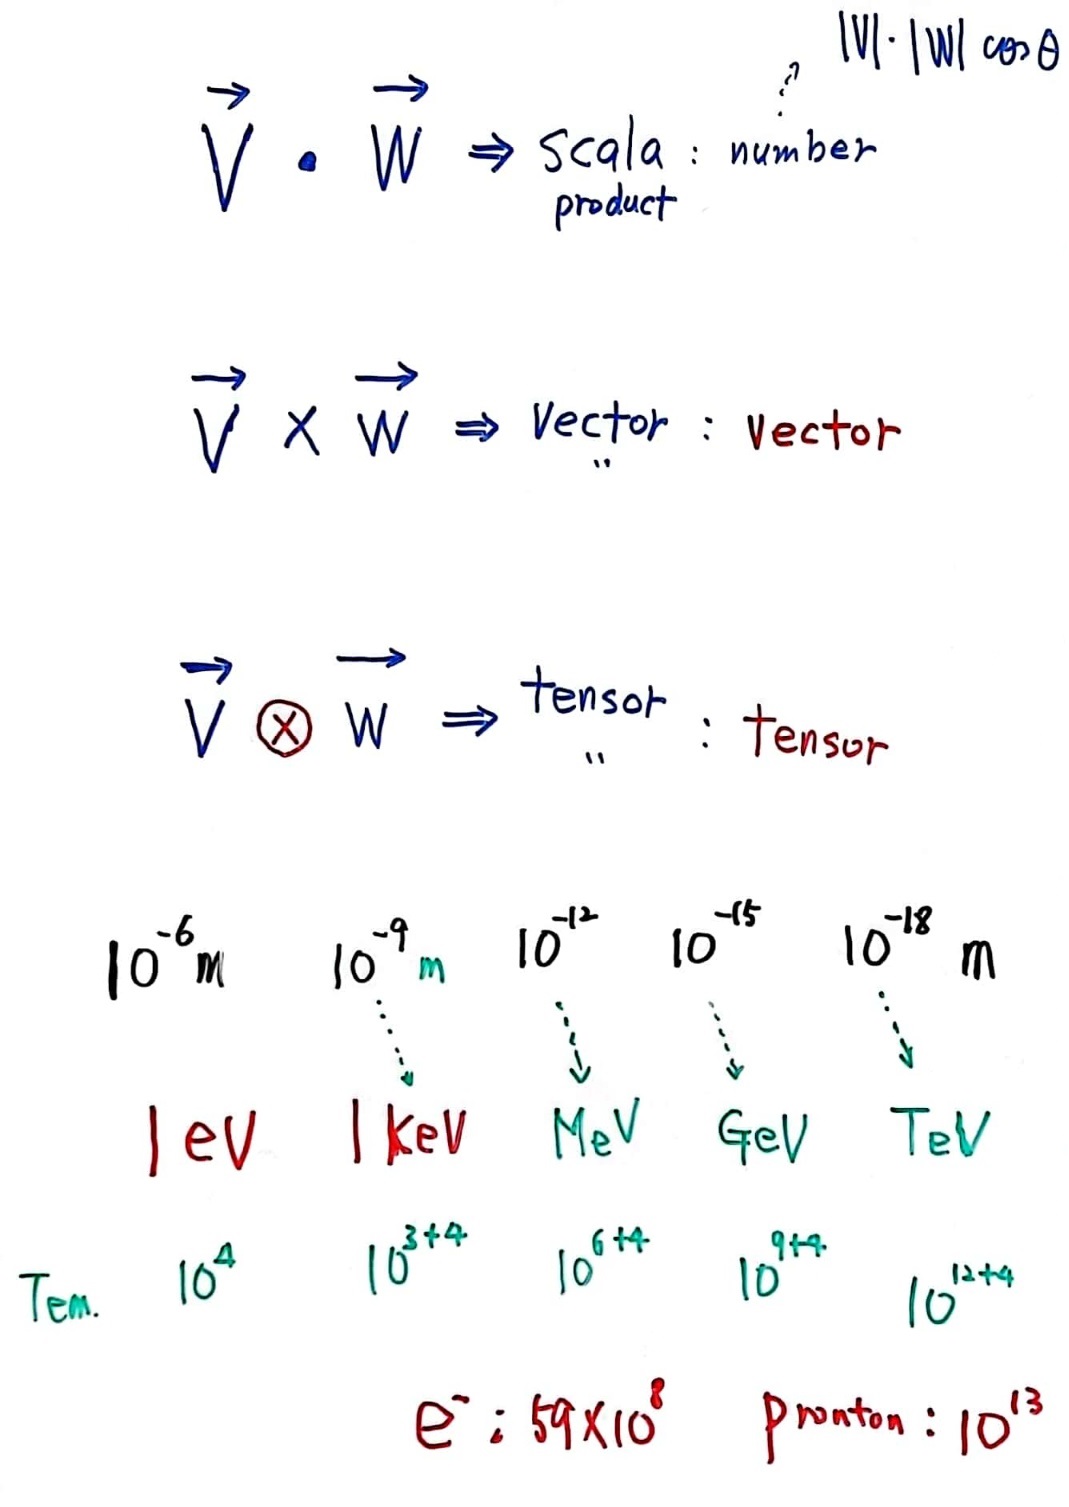 |V|·|W| cos θ
V⃗ • W⃗ ⇒ scala : number
product
V⃗ × W⃗ ⇒ vector : vector
"
V⃗ ⊗ W⃗ ⇒ tensor : tensor
"
10⁻⁶ m 10⁻⁹ m 10⁻¹² 10⁻¹⁵ 10⁻¹⁸ m
1 eV 1 KeV MeV GeV TeV
Tem. 10⁴ 10³⁺⁴ 10⁶⁺⁴ 10⁹⁺⁴ 10¹²⁺⁴
e⁻ : 59×10⁸ pronton : 10¹³